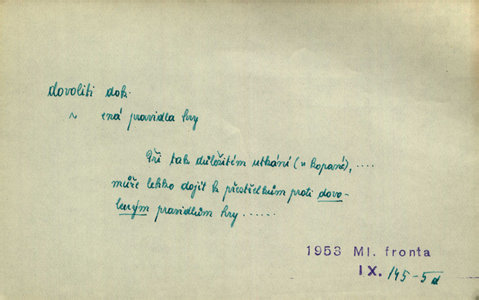 dovoliti dok.
~ ená pravidla hry
Při tak důležitém utkání (v kopané), ....
může lehko dojít k přestřelkům proti dovo-
leným pravidlům hry ......
1953 Ml. fronta
IX. 145-5d